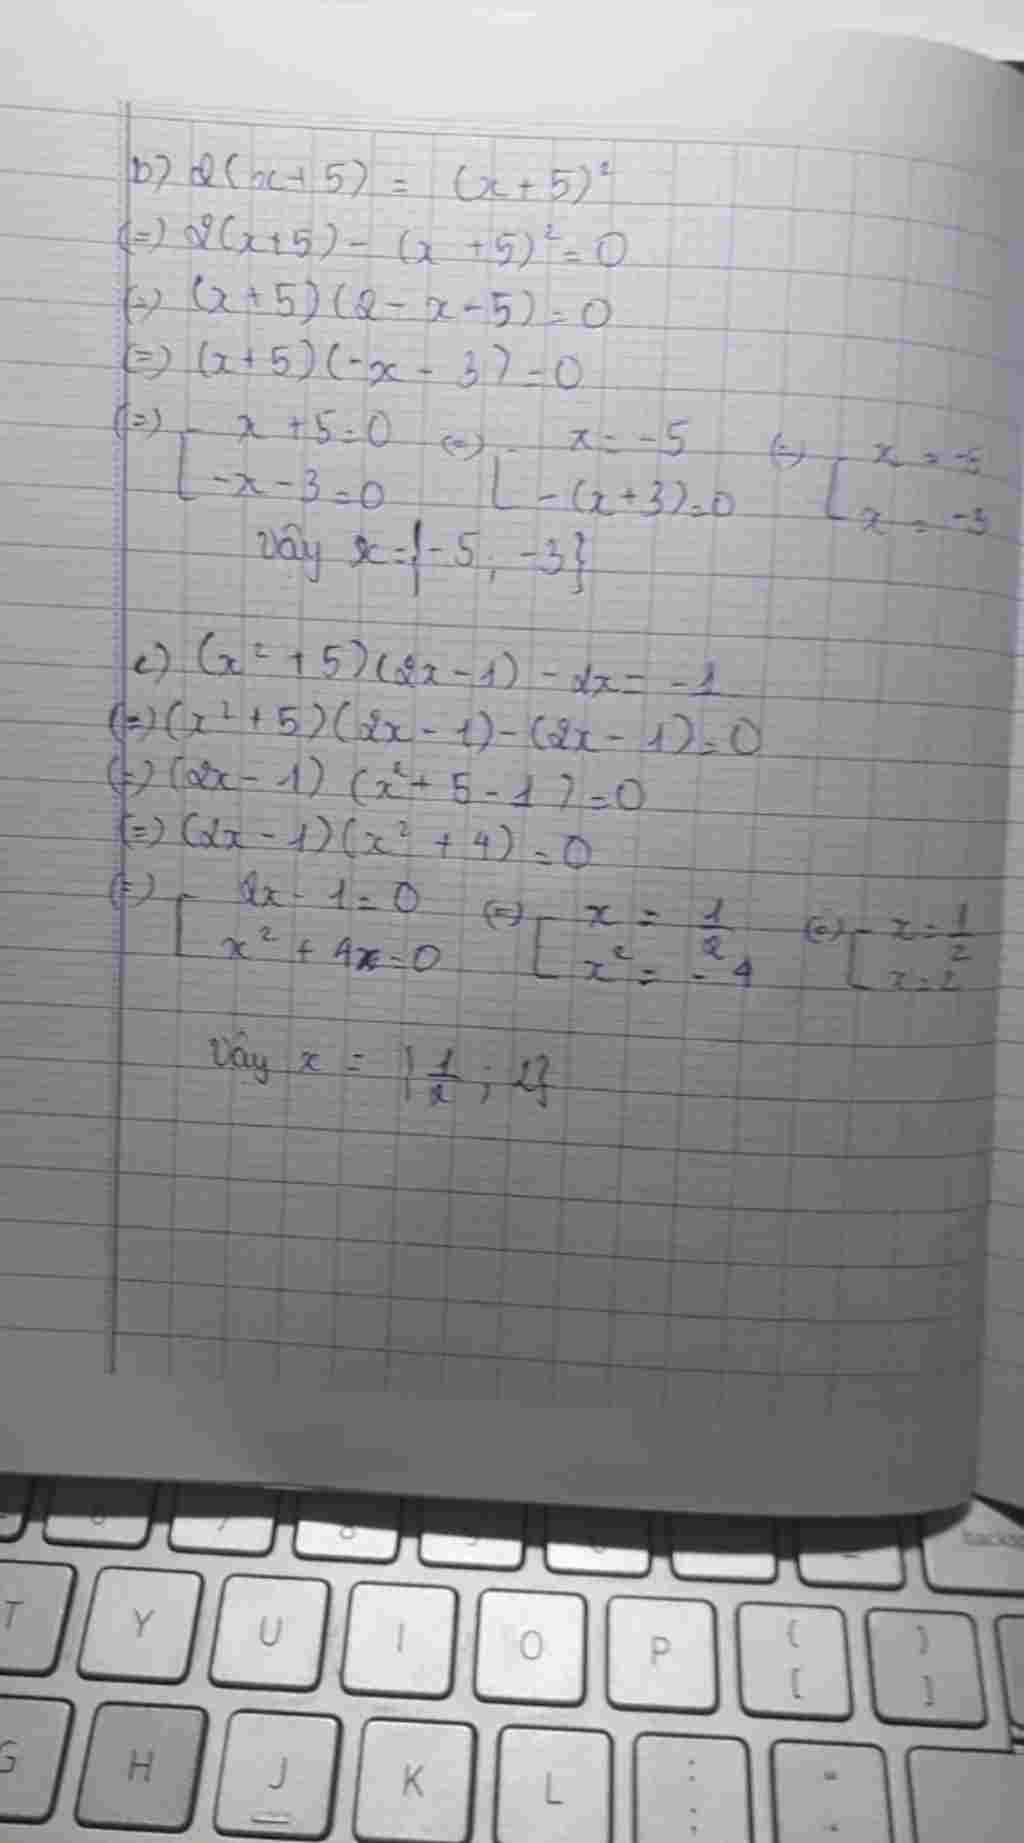 b) 2(x+5) = (x+5)²
(=) 2(x+5) - (x +5)² = 0
(=) (x+5)(2 - x - 5) = 0
(=) (x+5)(-x - 3) = 0
(=) [ x + 5 = 0 (=) [ x = -5 (=) [ x = -5
-x - 3 = 0 -(x+3) = 0 x = -3
Vây x = {-5; -3}
c) (x² + 5)(2x-1) - 2x = -1
(=) (x² + 5)(2x - 1) - (2x - 1) = 0
(=) (2x - 1) (x² + 5 - 1) = 0
(=) (2x - 1)(x² + 4) = 0
(=) [ 2x - 1 = 0 (=) [ x = 1/2 (=) [ x = 1/2
x² + 4x = 0 x² = -4 x = 2
Vây x = {1/2; 2}
T Y U I O P { [ } ]
G H J K L : ;